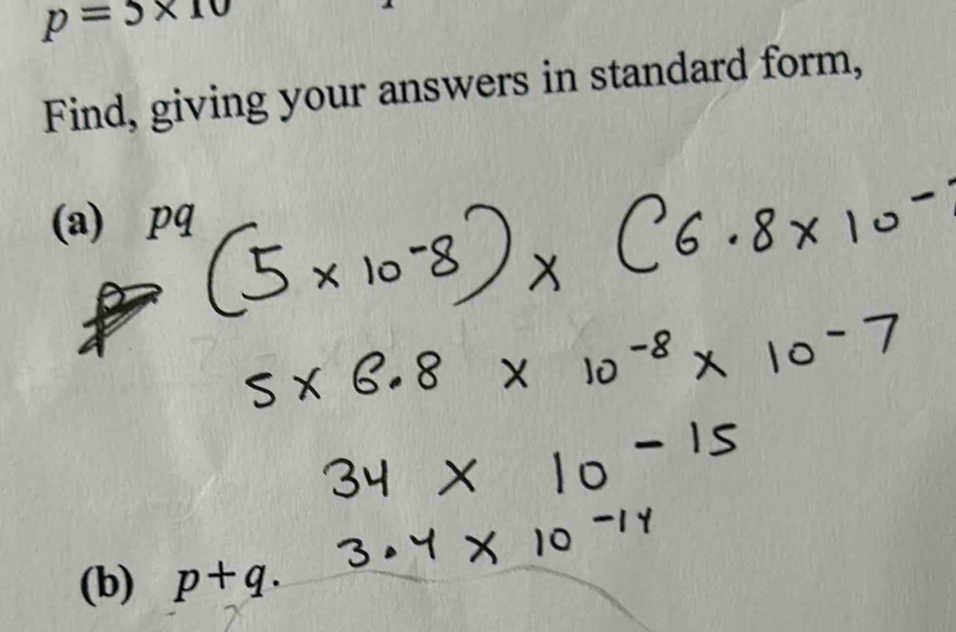 p = 5 × 10
Find, giving your answers in standard form,
(a) pq (5 × 10⁻⁸) × (6.8 × 10⁻
5 × 6.8 × 10⁻⁸ × 10⁻⁷
34 × 10⁻¹⁵
3.4 × 10⁻¹⁴
(b) p+q.